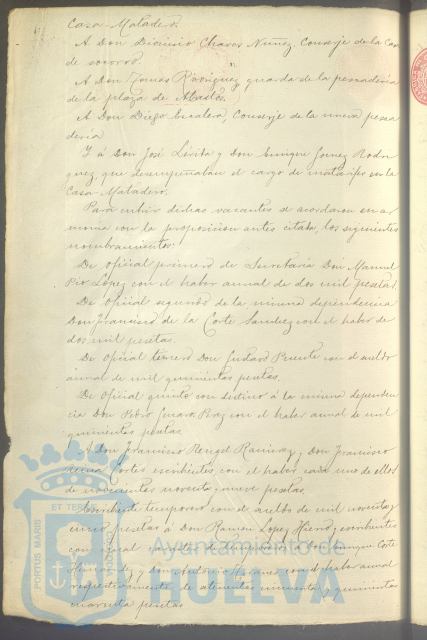 Casa-Matadero.
A Don Dionisio Chaves Nuñez, Conserje de la Casa
de socorro.
A Don Tomas Rodriguez, guarda de la pescadería
de la plaza de Abastos,
A Don Diego Conserje de la nueva pesca
dería
Y á Don José y Don Enrique Gomez Rodri
guez, que desempeñaban el cargo de matarifes en la
Casa-Matadero.
Para cubrir dichas vacantes se acordaron en ar
monia con la proposicion antes citada, los siguientes
nombramientos:
De oficial primero de Secretaria Don Manuel
Lopez con el haber anual de dos mil pesetas.
De oficial segundo de la misma dependencia
Don Francisco de la Corte Sanchez con el haber de
dos mil pesetas.
De oficial tercero Don Gustavo Puente con el sueldo
anual de mil quinientas pesetas.
De oficial quinto con destino á la misma dependen
cia Don Pedro con el haber anual de mil
quinientas pesetas.
A Don Francisco Rengel Ramirez y Don Francisco
Cortes escribientes con el haber cada uno de ellos
de novecientas noventa y nueve pesetas.
Escribiente temporero con el sueldo de mil noventa y
cinco pesetas á Don Ramon Lopez y escribientes
con igual Don Enrique Corte
y Don con el haber anual
respectivamente de y quinientas
cuarenta pesetas
PORTUS MARIS ET TERRAE
Ayuntamiento de
HUELVA